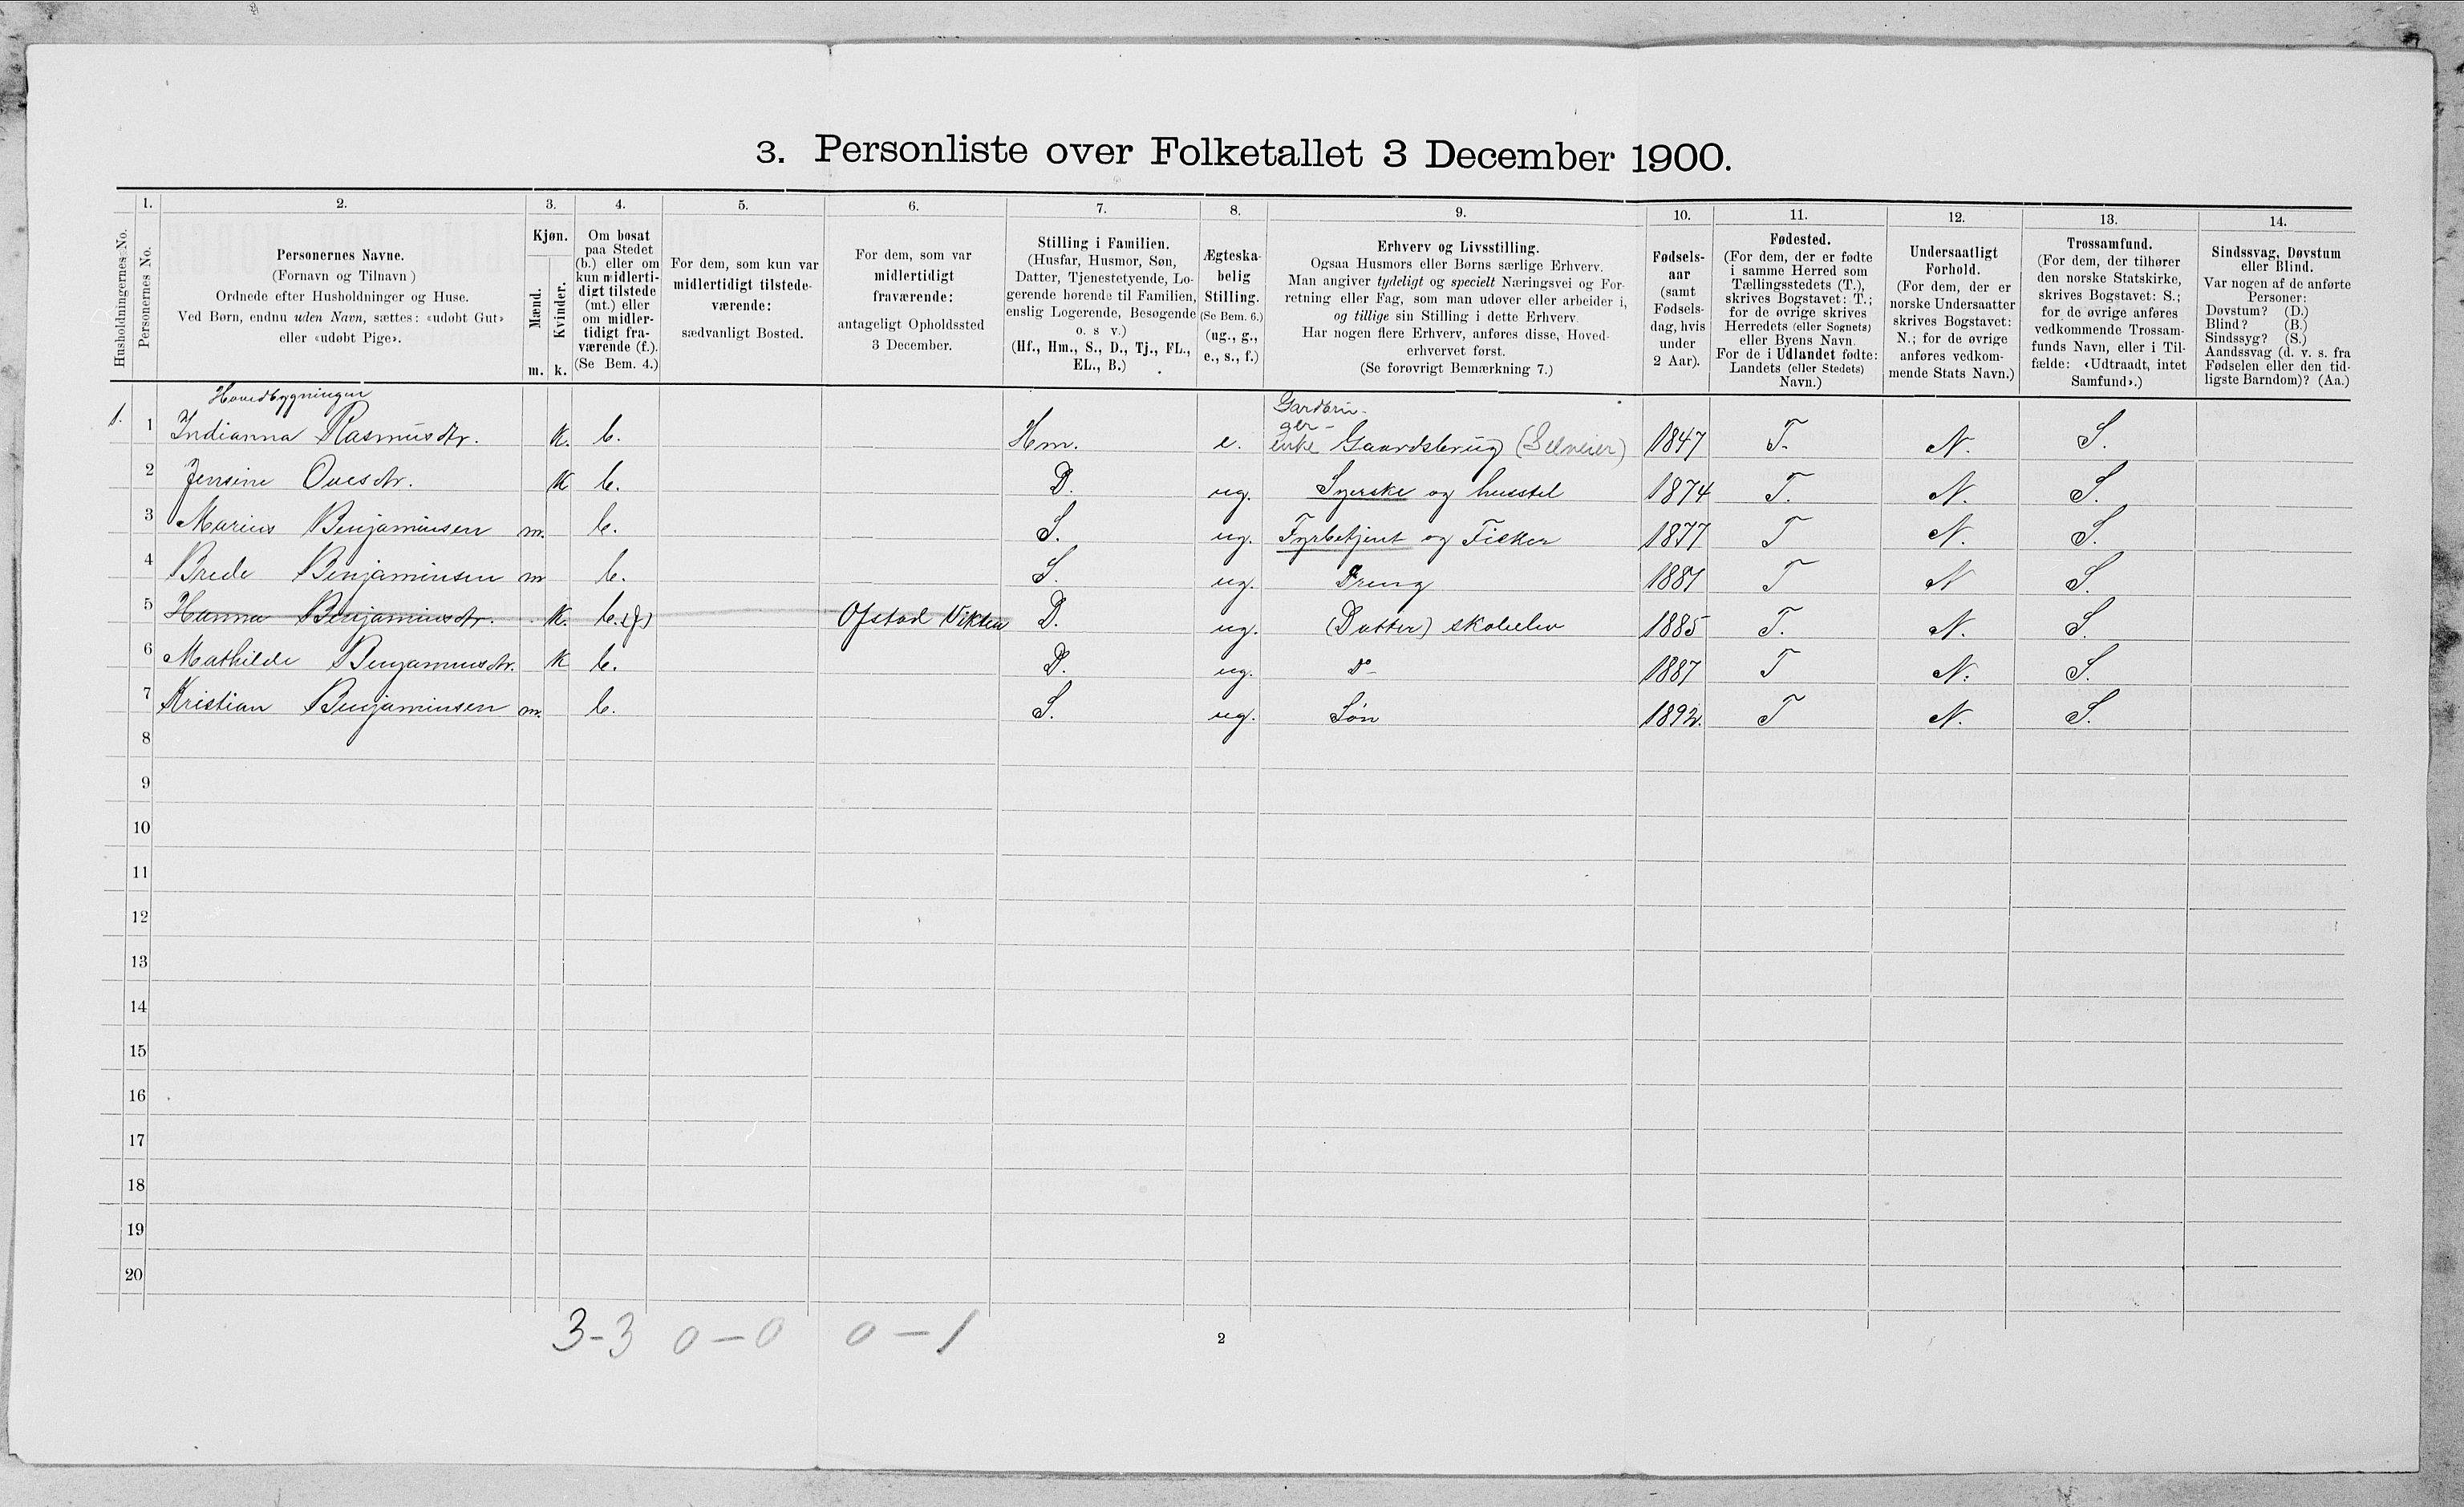 3. Personliste over Folketallet 3 December 1900.
1. 2. 3. 4. 5. 6. 7. 8. 9. 10. 11. 12. 13. 14.
Husholdningernes No.
Personernes No.
Personernes Navne.
(Fornavn og Tilnavn)
Ordnede efter Husholdninger og Huse.
Ved Børn, endnu uden Navn, sættes: «udøbt Gut»
eller «udøbt Pige».
Kjøn.
Mænd.
Kvinder.
m. k.
Om bosat
paa Stedet
(b.) eller om
kun midlerti-
digt tilstede
(mt.) eller
om midler-
tidigt fra-
værende (f.).
(Se Bem. 4.)
For dem, som kun var
midlertidigt tilstede-
værende:
sædvanligt Bosted.
For dem, som var
midlertidigt
fraværende:
antageligt Opholdssted
3 December.
Stilling i Familien.
(Husfar, Husmor, Søn,
Datter, Tjenestetyende, Lo-
gerende hørende til Familien,
enslig Logerende, Besøgende
o. s v.)
(Hf., Hm., S., D., Tj., FL.,
EL., B.)
Ægteska-
belig
Stilling.
(Se Bem. 6.)
(ug., g.,
e., s., f.)
Erhverv og Livsstilling.
Ogsaa Husmors eller Børns særlige Erhverv.
Man angiver tydeligt og specielt Næringsvei og For-
retning eller Fag, som man udøver eller arbeider i,
og tillige sin Stilling i dette Erhverv.
Har nogen flere Erhverv, anføres disse, Hoved-
erhvervet først.
(Se forøvrigt Bemærkning 7.)
Fødsels-
aar
(samt
Fødsels-
dag, hvis
under
2 Aar).
Fødested.
(For dem, der er fødte
i samme Herred som
Tællingsstedets (T.),
skrives Bogstavet: T.;
for de øvrige skrives
Herredets (eller Sognets)
eller Byens Navn.
For de i Udlandet fødte:
Landets (eller Stedets)
Navn.)
Undersaatligt
Forhold.
(For dem, der er
norske Undersaatter
skrives Bogstavet:
N.; for de øvrige
anføres vedkom-
mende Stats Navn.)
Trossamfund.
(For dem, der tilhører
den norske Statskirke,
skrives Bogstavet: S.;
for de øvrige anføres
vedkommende Trossam-
funds Navn, eller i Til-
fælde: «Udtraadt, intet
Samfund».)
Sindssvag, Døvstum
eller Blind.
Var nogen af de anførte
Personer:
Døvstum? (D.)
Blind? (B.)
Sindssyg? (S.)
Aandssvag (d. v. s. fra
Fødselen eller den tid-
ligste Barndom)? (Aa.)
Hovedbygningen
1. 1 Indianna Rasmusdtr. K. b. Hm. e. Gardbru-
ger-
enke Gaardsbrug (Selveier) 1847 T. N. S.
2 Jensine Ovesdtr. K b. D. ug. Syerske og husstel 1874 T. N. S.
3 Marius Benjaminsen m. b. S. ug. Fyrbetjent og Fisker 1877 T N. S.
4 Brede Benjaminsen m b. S. ug. Dreng 1881 T N S.
5 Hanna Benjaminsdtr. K. b. (f) Ofstad Vikten D. ug. (Datter) skoleelev 1885 T. N. S.
6 Mathilde Benjaminsdtr. K b. D. ug. Do 1887 T N. S.
7 Kristian Benjaminsen m. b. S. ug. Søn 1892. T N. S.
8
9
10
11
12
13
14
15
16
17
18
19
20
3-3 0-0 0-1
2